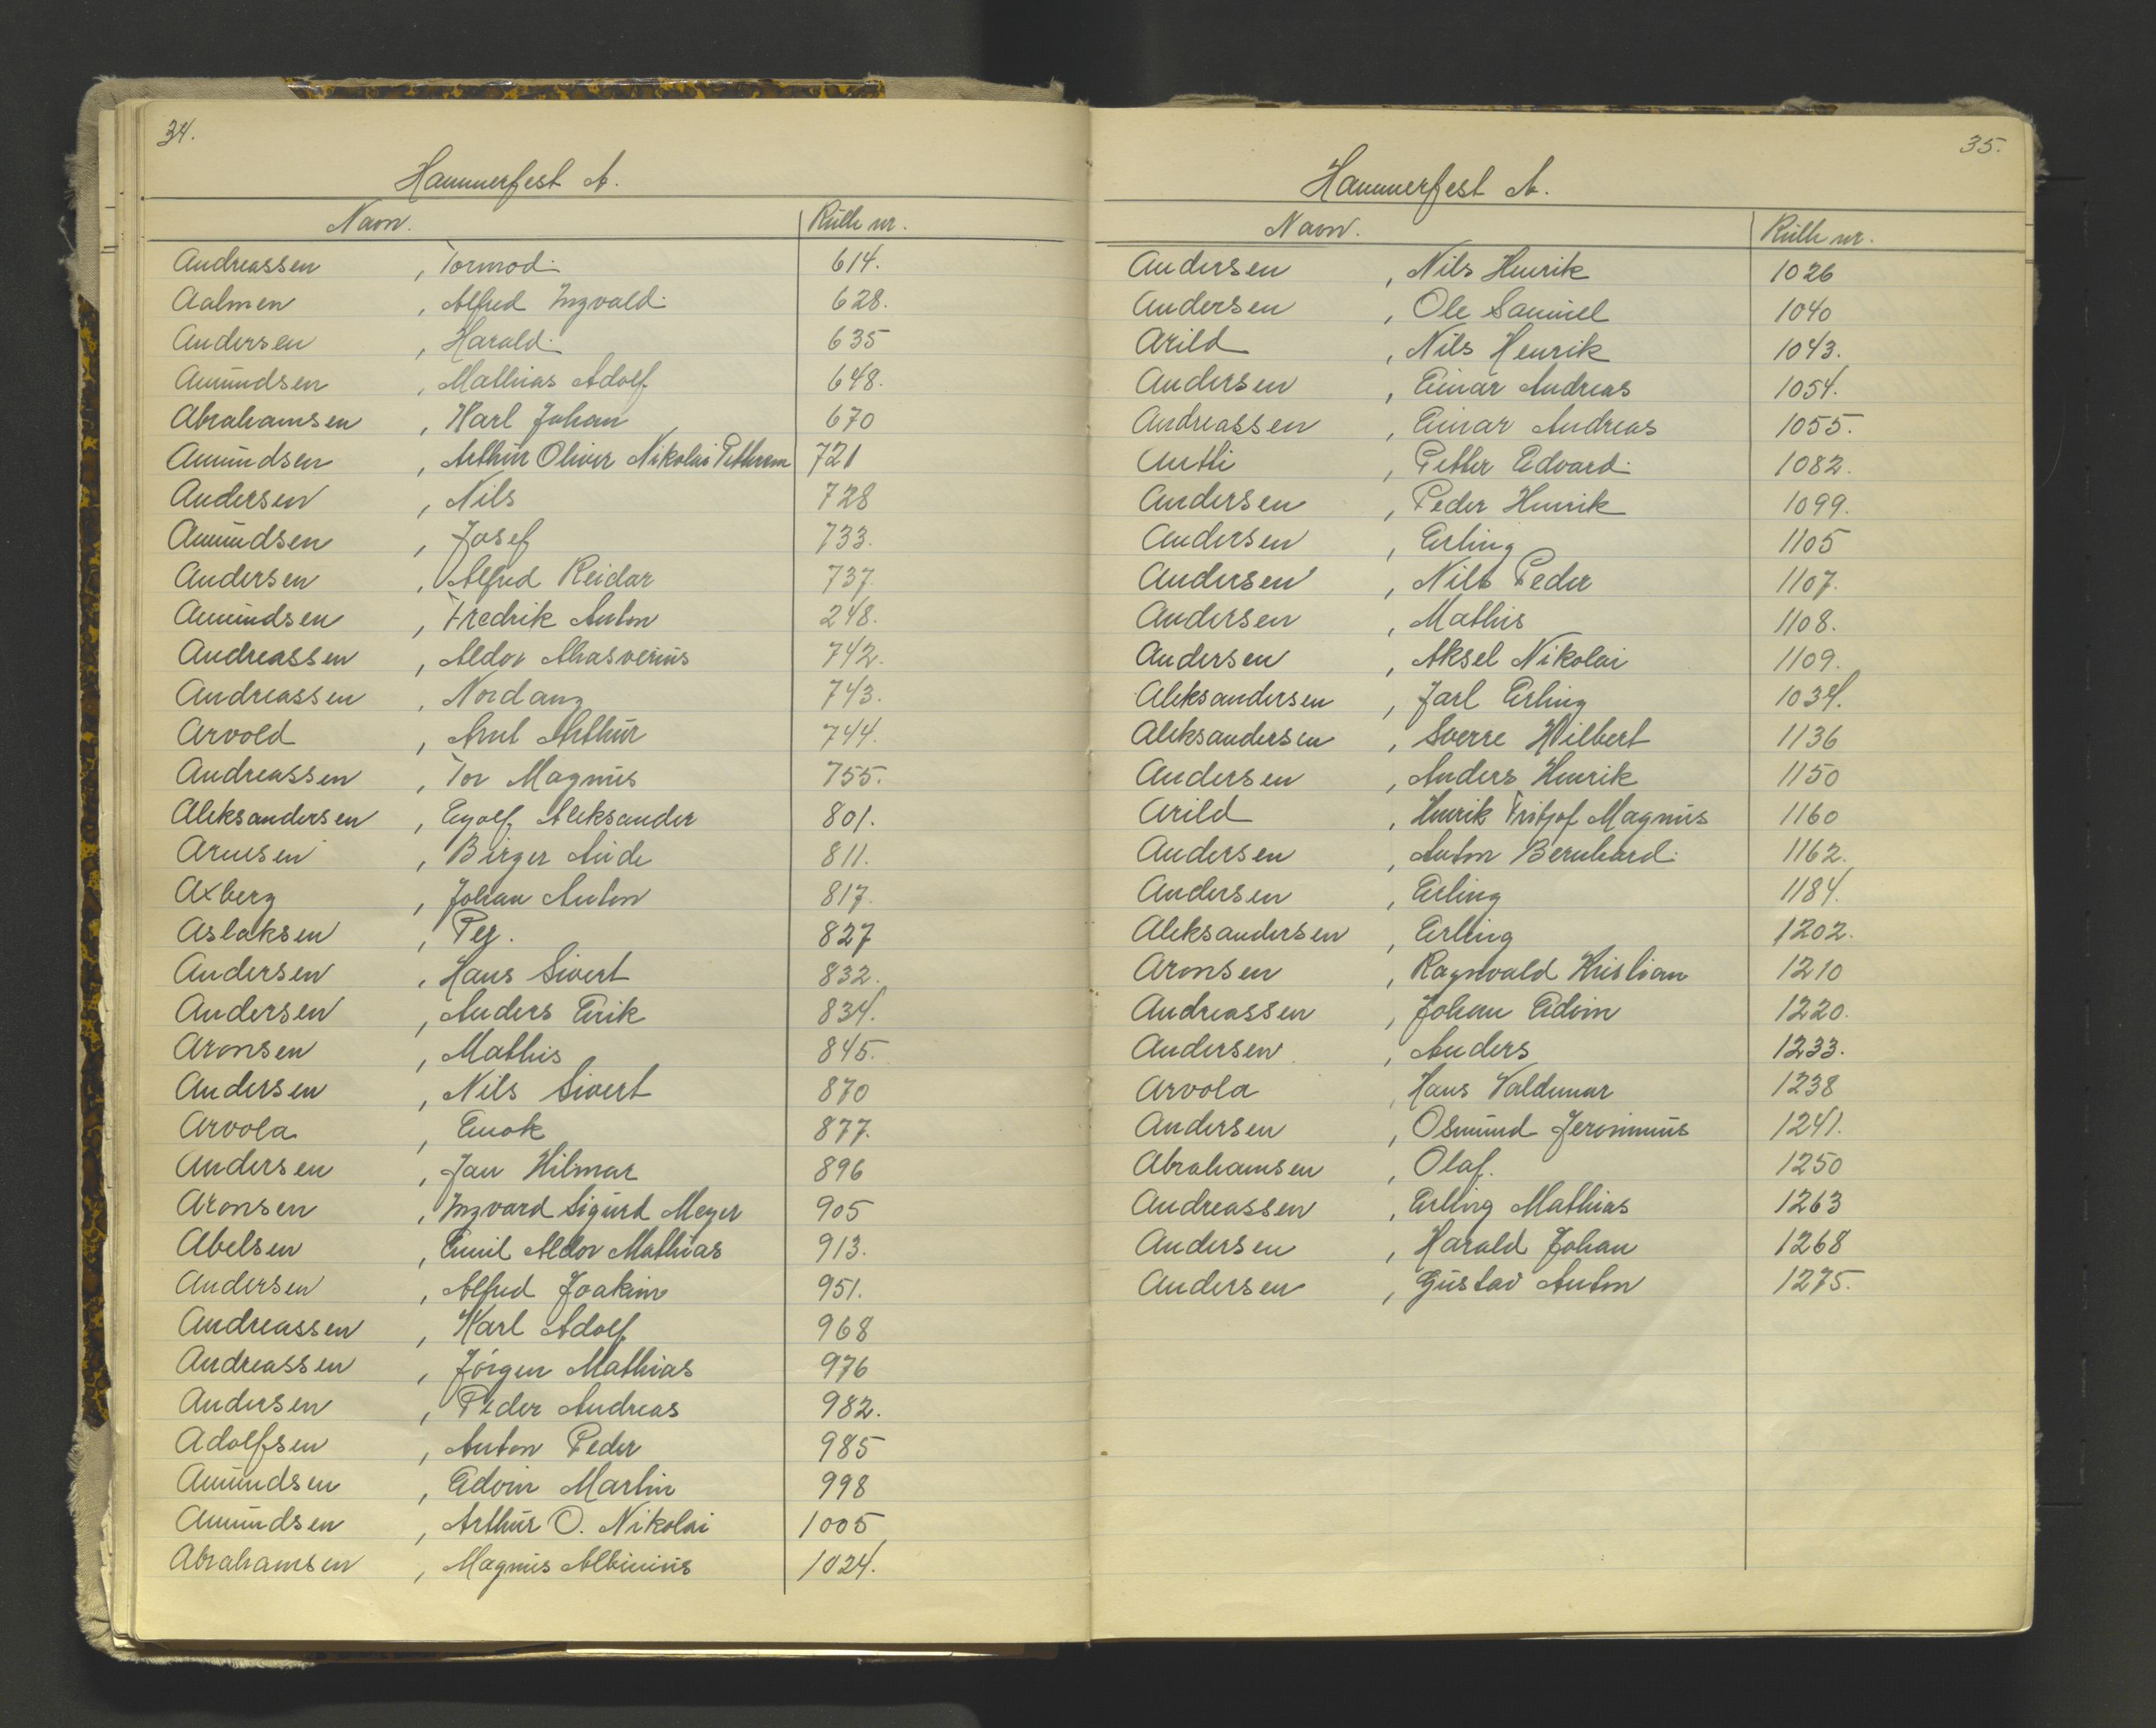 34.
Hammerfest A.
Navn. Rulle nr.
Andreassen , Tormod. 614.
Aalmen , Alfred Ingvald. 628.
Andersen , Harald. 635
Amundsen , Mathias Adolf 648.
Abrahamsen , Karl Johan 670
Amundsen , Arthur Oliver Nikolai 721
Andersen , Nils 728
Amundsen , Josef 733.
Andersen , Alfred Reidar 737.
Amundsen , Fredrik Anton 248.
Andreassen , Aldor Ahasverius 742.
Andreassen , Nordang 743.
Arvold , Arnt Arthur 744.
Andreassen , Tor Magnus 755.
Aleksandersen , Eyolf Aleksander 801.
Arnesen , Birger 811.
Axberg , Johan Anton 817.
Aslaksen , Per. 827
Andersen , Hans Sivert 832.
Andersen , Anders Eirik 834.
Aronsen , Mathis 845.
Andersen , Nils Sivert 870
Arvola , Enok 877.
Andersen , Jan Hilmar 896
Aronsen , Ingvard Sigurd Meyer 905
Abelsen , Emil Aldor Mathias 913.
Andersen , Alfred Joakim 951.
Andreassen , Karl Adolf 968
Andreassen , Jörgen Mathias 976
Andersen , Peder Andreas 982.
Adolfsen , Anton Peder 985
Amundsen , Edvin Martin 998
Amundsen , Arthur O. Nikolai 1005
Abrahamsen , Magnus Albinius 1024.
35.
Hammerfest A.
Navn. Rulle nr.
Andersen , Nils Henrik 1026
Andersen , Ole Samuel 1040
Arild , Nils Henrik 1043.
Andersen , Einar Andreas 1054.
Andreassen , Einar Andreas 1055.
Antti , Petter Edvard. 1082.
Andersen , Peder Henrik 1099.
Andersen , Erling 1105
Andersen , Nils Peder 1107.
Andersen , Mathis 1108.
Andersen , Aksel Nikolai 1109.
Aleksandersen , Jarl Erling 1034.
Aleksandersen , Sverre Hilbert 1136
Andersen , Anders Henrik 1150
Arild , Henrik Fritjof Magnus 1160
Andersen , Anton Bernhard. 1162.
Andersen , Erling 1184.
Aleksandersen , Erling 1202.
Aronsen , Ragnvald Kristian 1210
Andreassen , Johan Edvin 1220.
Andersen , Anders 1233.
Arvola , Hans Valdemar 1238
Andersen , Osmund Jeronimus 1241.
Abrahamsen , Olaf. 1250
Andreassen , Erling Mathias 1263
Andersen , Harald Johan 1268
Andersen , Gustav Anton 1275.